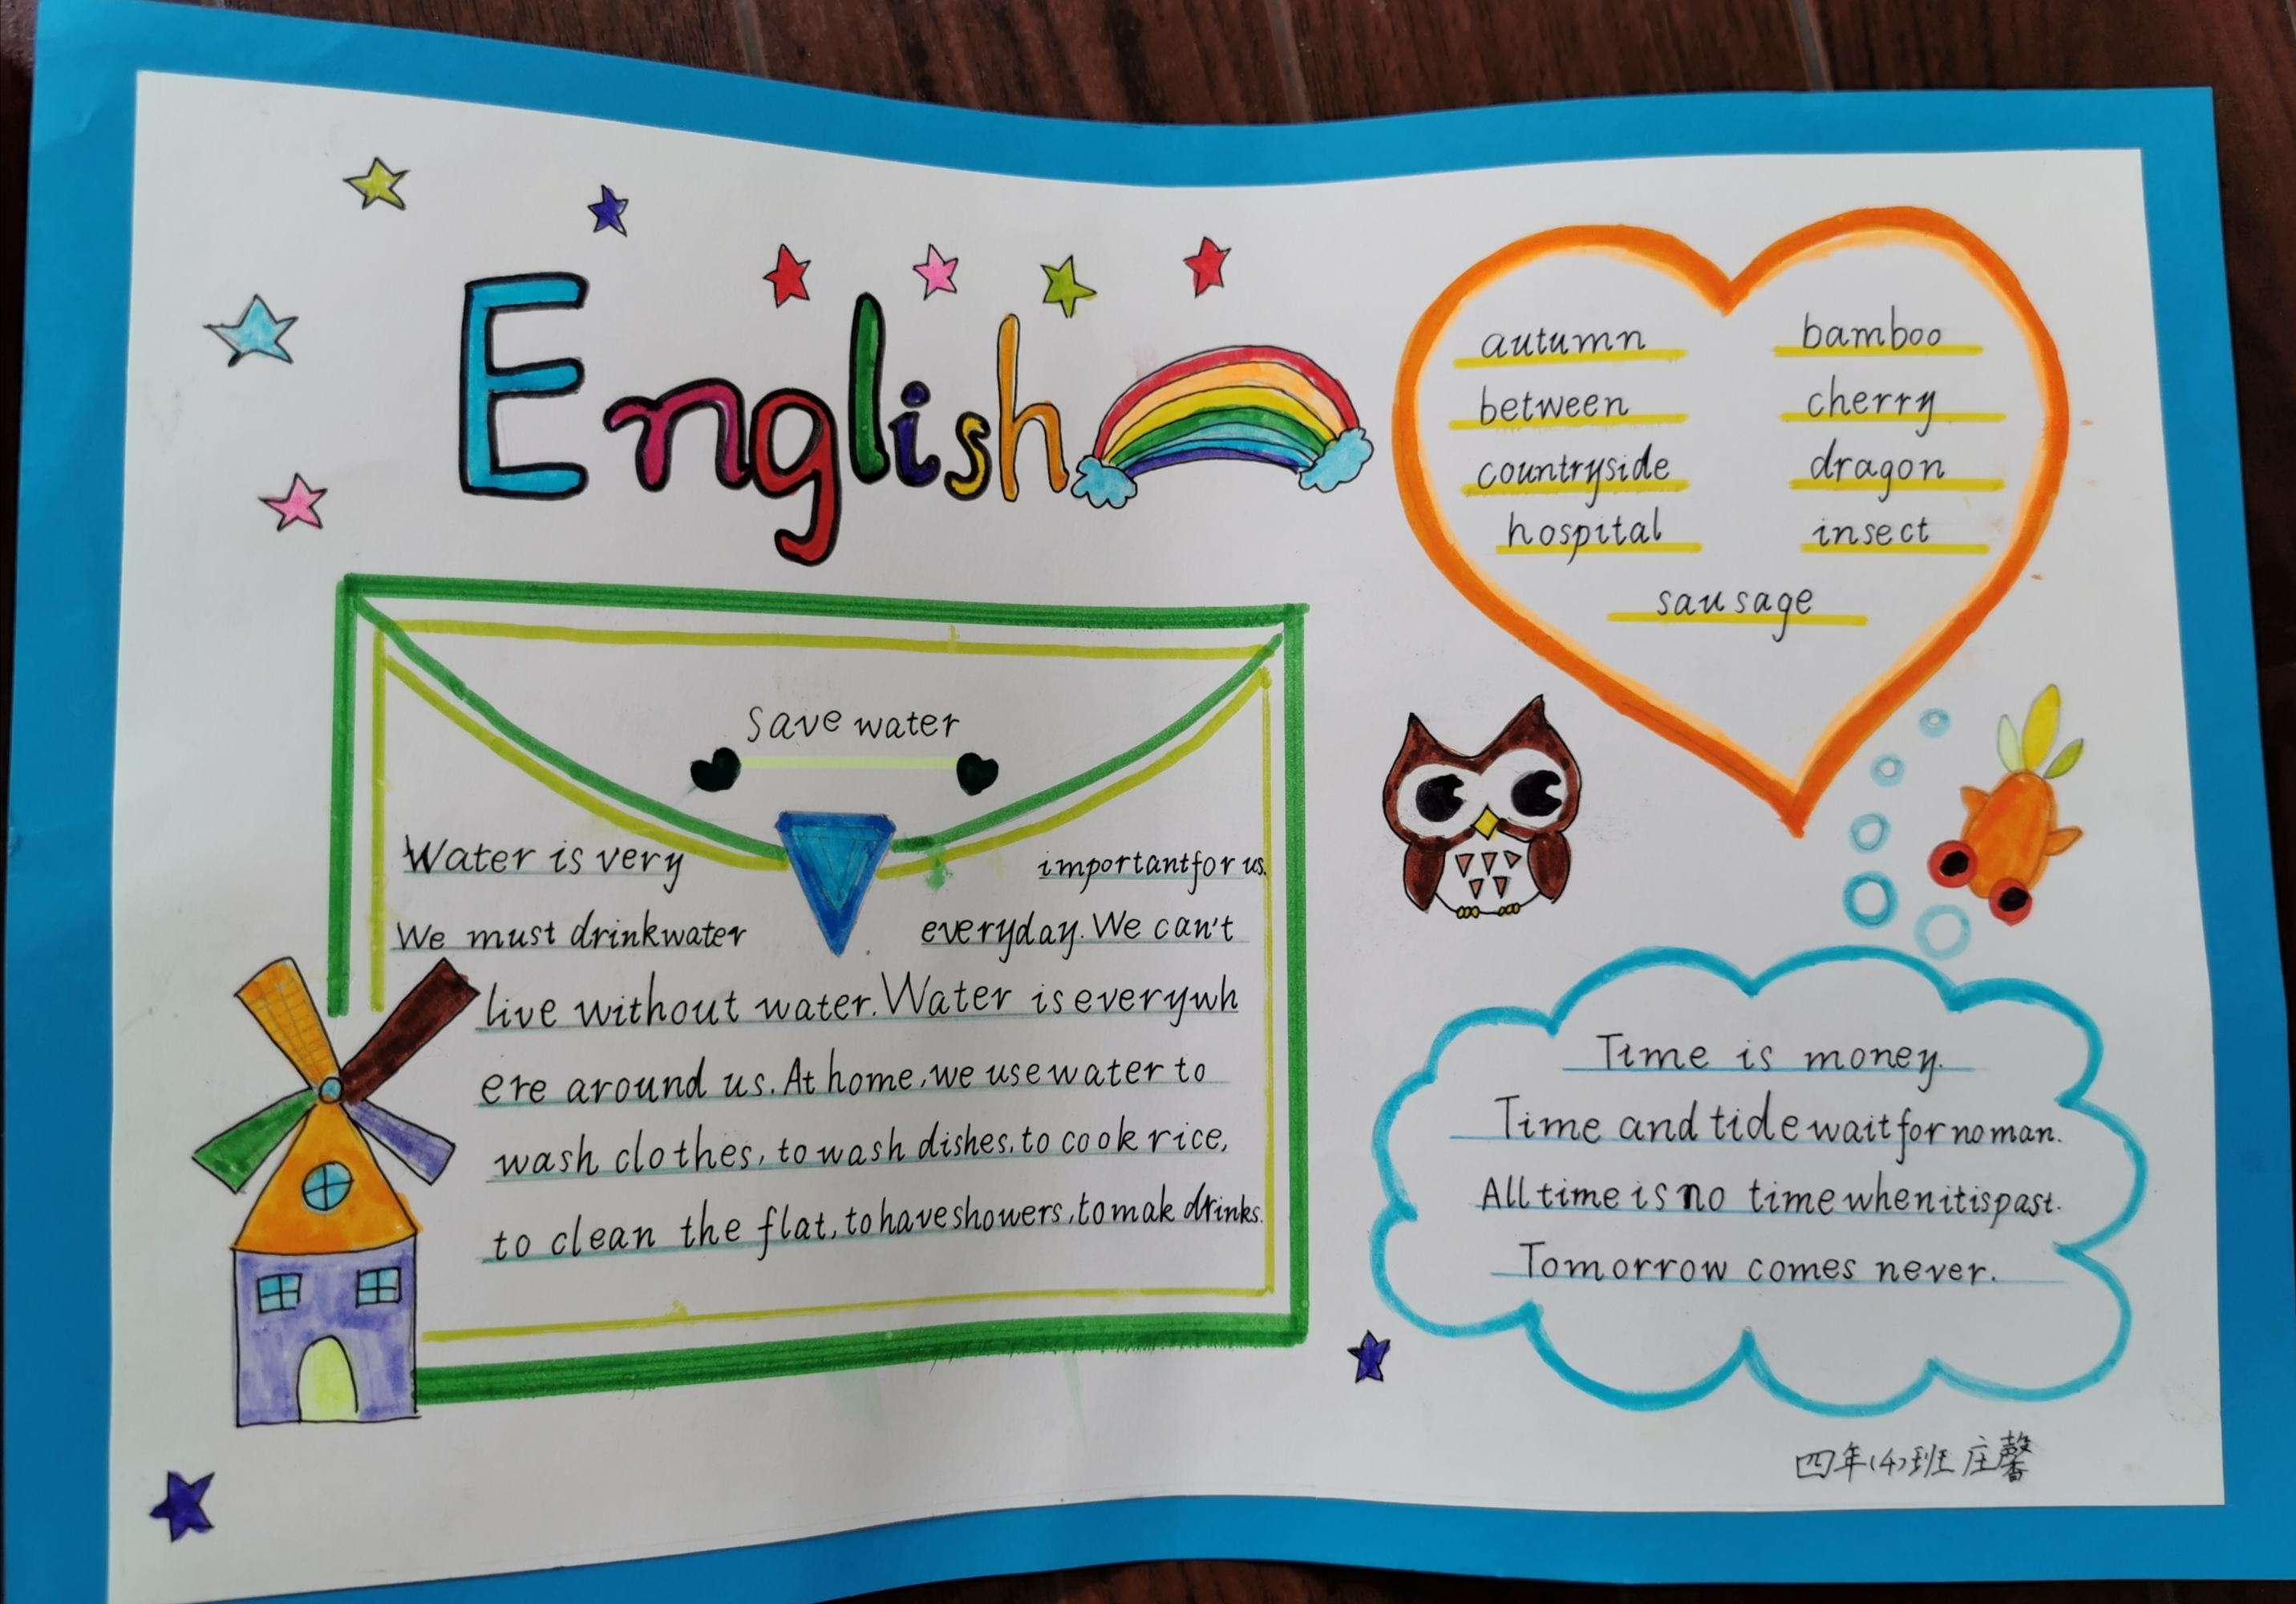 English
autumn bamboo
between cherry
countryside dragon
hospital insect
sausage
Save water
Water is very important for us.
We must drink water everyday. We can't
live without water. Water is everywh
ere around us. At home, we use water to
wash clothes, to wash dishes, to cook rice,
to clean the flat, to have showers, to mak drinks.
Time is money.
Time and tide wait for no man.
All time is no time when it is past.
Tomorrow comes never.
四年(4)班 庄馨